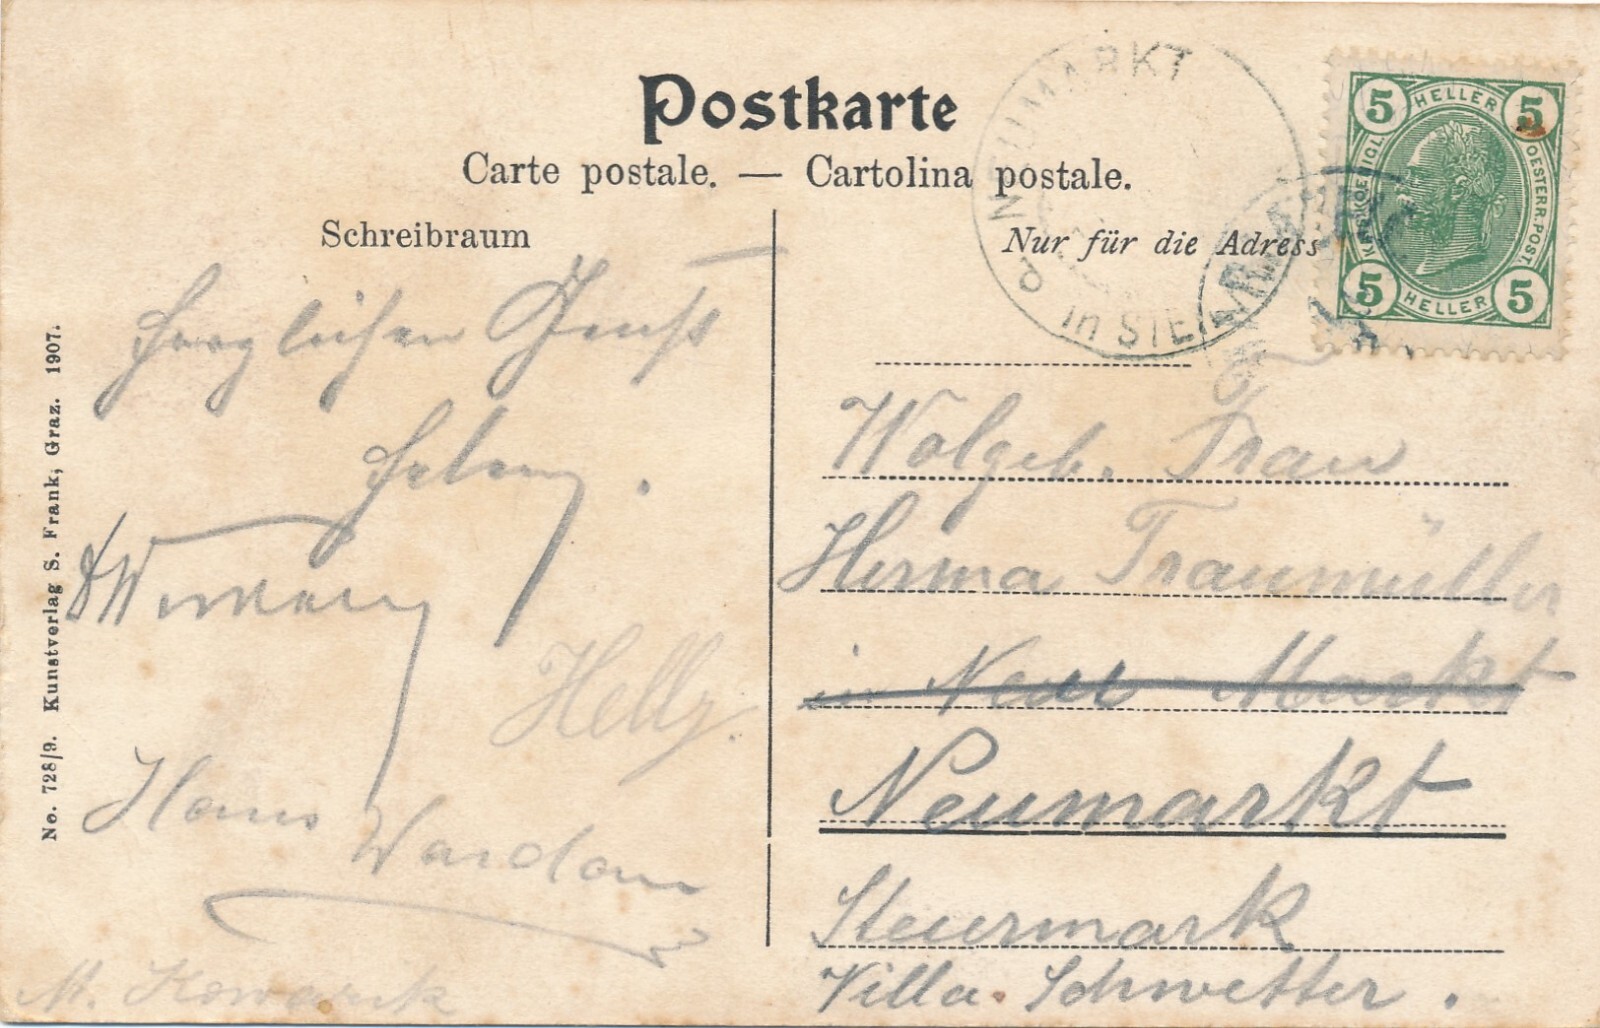 Postkarte
Carte postale. — Cartolina postale.
Schreibraum
Nur für die Adress
NEUMARKT
in STEI
5 HELLER 5
OESTERR. POST.
5 HELLER 5
No. 728/9. Kunstverlag S. Frank, Graz. 1907.
Herzlichen Gruß
Helly.
Hans Wardan
M. Kowarik
Wolgeb. Frau
Herma Traumüller
in Neu Markt
Neumarkt
Steiermark
Villa. Schwetter.